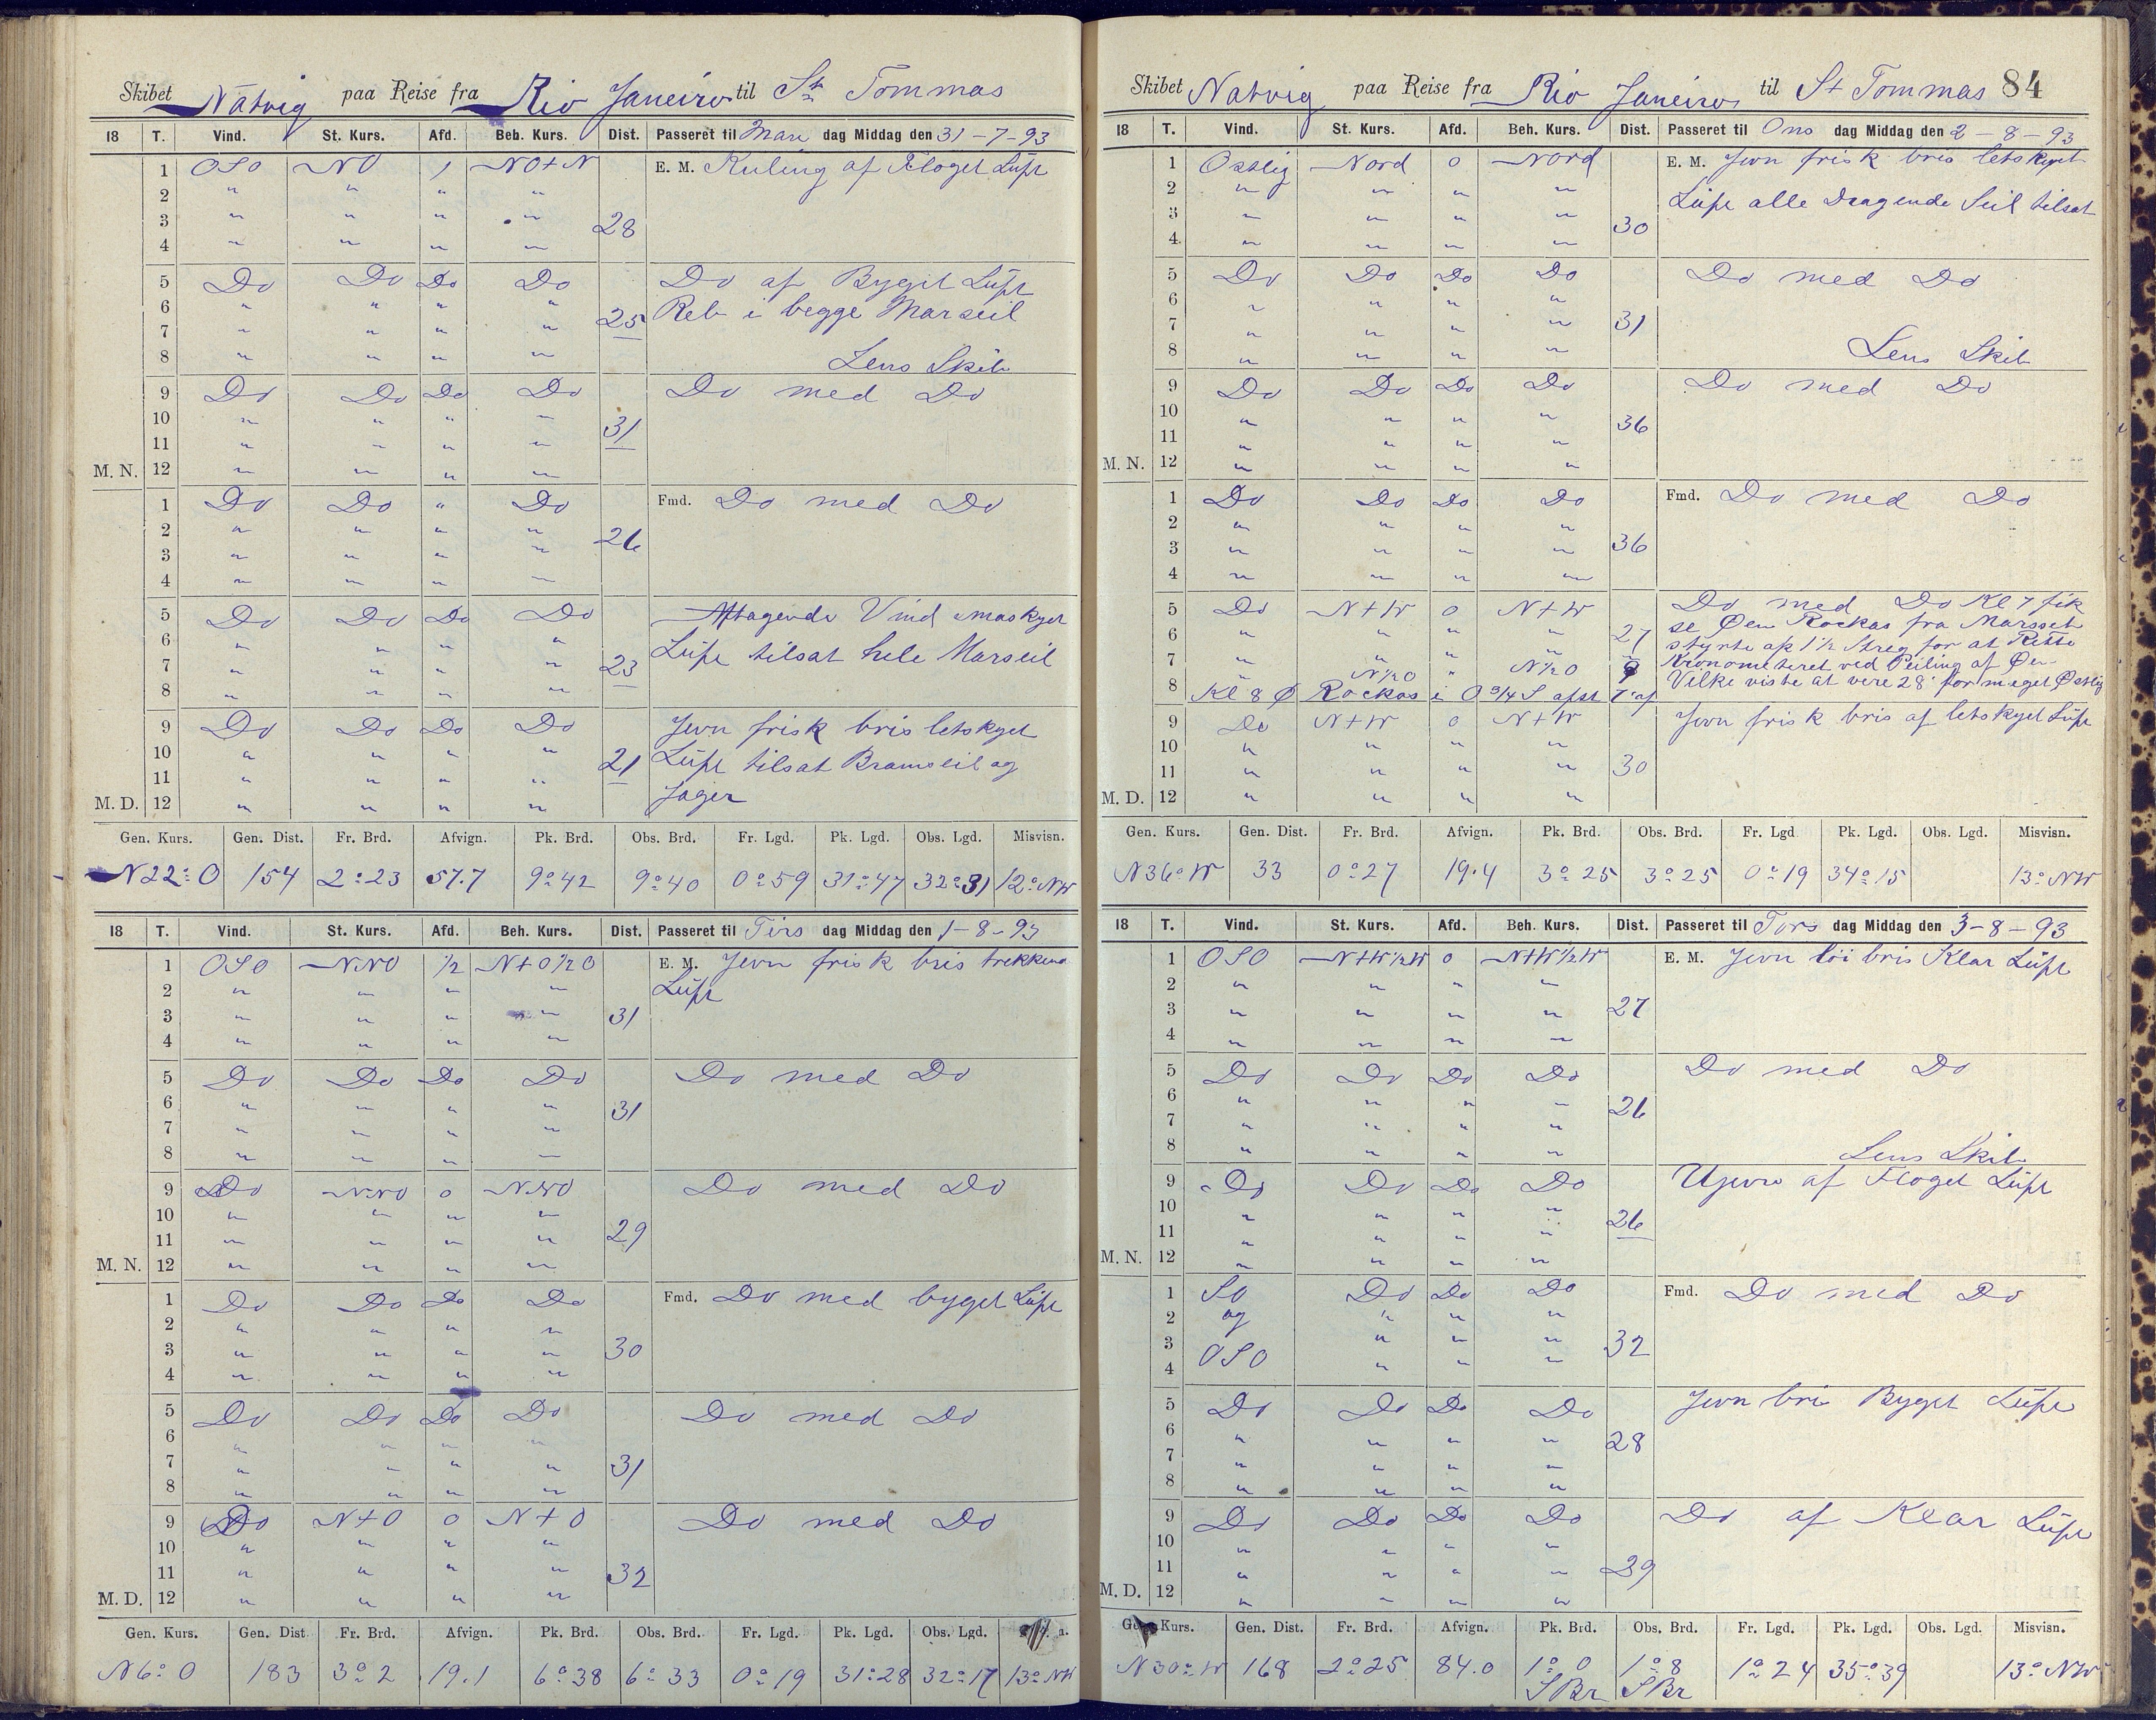 Skibet Natvig paa Reise fra Rio Janeiro til St Tommas
18 T. Vind. St. Kurs. Afd. Beh. Kurs. Dist. Passeret til Man dag Middag den 31-7-93
1 OSO NO 1 NO+N E. M. Kuling af Floget Luft
2 " " " "
3 " " " " 28
4 " " " "
5 Do Do Do Do Do af Byget Luft
6 " " " " Reb i begge Marseil
7 " " " " 25
8 " " " " Lens Skib
9 Do Do Do Do Do med Do
10 " " " "
11 " " " " 31
M. N. 12 " " " "
1 Do Do " Do Fmd. Do med Do
2 " " " "
3 " " " " 26
4 " " " "
5 Do Do Do Do Aftagende Vind smaskyet
6 " " " " Luft tilsat hele Marseil
7 " " " " 23
8 " " " "
9 Do Do Do Do Jevn frisk bris letskyet
10 " " " " 21 Luft tilsat Bramseil og
11 " " " " Jager
M. D. 12 " " " "
Gen. Kurs. Gen. Dist. Fr. Brd. Afvign. Pk. Brd. Obs. Brd. Fr. Lgd. Pk. Lgd. Obs. Lgd. Misvisn.
N22°O 154 2°23 57.7 9°42 9°40 0°59 31°47 32°31 12°NW
18 T. Vind. St. Kurs. Afd. Beh. Kurs. Dist. Passeret til Tirs dag Middag den 1-8-93
1 OSO NNO 1/2 N+O1/2O E. M. Jevn frisk bris trekkend
2 " " " " Luft
3 " " " " 31
4 " " " "
5 Do Do Do Do Do med Do
6 " " " " 31
7 " " " "
8 " " " "
9 Do NNO 0 NNO Do med Do
10 " " " "
11 " " " " 29
M. N. 12 " " " "
1 Do Do Do Do Fmd. Do med byget Luft
2 " " " "
3 " " " " 30
4 " " " "
5 Do Do Do Do Do med Do
6 " " " "
7 " " " " 31
8 " " " "
9 Do N+O 0 N+O Do med Do
10 " " " "
11 " " " " 32
M. D. 12 " " " "
Gen. Kurs. Gen. Dist Fr. Brd. Afvign. Pk. Brd. Obs. Brd. Fr. Lgd. Pk. Lgd. Obs. Lgd.
N6°O 183 3°2 19.1 6°38 6°33 0°19 31°28 32°17 13°NW
Skibet Natvig paa Reise fra Rio Janeiro til St Tommas 84
18 T. Vind. St. Kurs. Afd. Beh. Kurs. Dist. Passeret til Ons dag Middag den 2-8-93
1 Ostlig Nord 0 Nord E. M. Jevn frisk bris letskyet
2 " " " " Luft alle Dragende Seil tilsat
3 " " " " 30
4 " " " "
5 Do Do Do Do Do med Do
6 " " " "
7 " " " " 31
8 " " " " Lens Skib
9 Do Do Do Do Do med Do
10 " " " " 36
11 " " " "
M. N. 12 " " " "
1 Do Do Do Do Fmd. Do med Do
2 " " " "
3 " " " " 36
4 " " " "
5 Do N+W 0 N+W Do med Do Kl 7 fik
6 " " " " 27 se Øen Rockas fra Marsset
styrte op 1 1/2 Streg for at Rette
7 " N1/2O " N1/2O 9 Kronometeret ved Peiling af Øen
8 Kl 8 Ø Rockas i O 3/4 S afst 7' af Vilke viste at vere 28' for meget Østlig
9 Do N+W 0 N+W Jevn frisk bris af letskyet Luft
10 " " " "
11 " " " " 30
M. D. 12 " " " "
Gen. Kurs. Gen. Dist. Fr. Brd. Afvign. Pk. Brd. Obs. Brd. Fr. Lgd Pk. Lgd. Obs. Lgd. Misvisn.
N36°W 33 0°27 19.4 3°25 3°25 0°19 34°15 13°NW
18 T. Vind. St. Kurs. Afd. Beh. Kurs. Dist. Passeret til Tors dag Middag den 3-8-93
1 OSO N+W1/2W 0 N+W1/2W E. M. Jevn löi bris Klar Luft
2 " " " "
3 " " " " 27
4 " " " "
5 Do Do Do Do Do med Do
6 " " " " 26
7 " " " "
8 " " " " Lens Skib
9 Do Do Do Do Ujevn af Floget Luft
10 " " " "
11 " " " " 26
M. N. 12 " " " "
1 SO Do Do Do Fmd. Do med Do
2 og " " "
3 " " " 32
4 OSO " " "
5 Do Do Do Do Jevn bris Byget Luft
6 " " " " 28
7 " " " "
8 " " " "
9 Do Do Do Do Do af Klar Luft
10 " " " "
11 " " " " 29
M. D. 12 " " " "
Kurs. Gen. Dist. Fr. Brd. Afvign. Pk. Brd. Obs. Brd. Fr. Lgd. Pk. Lgd. Obs. Lgd. Misvisn.
N30°W 168 2°25 84.0 1°0 1°8 1°24 35°39 13°NW
SBr SBr